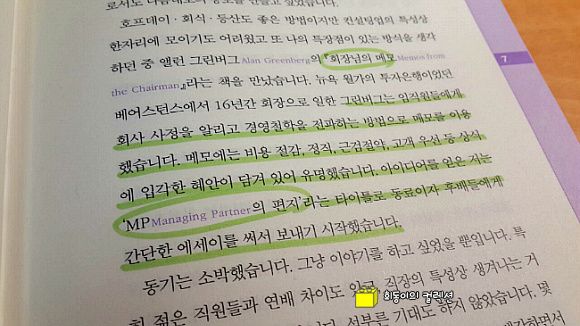 호프데이·회식·등산도 좋은 방법이지만 컨설팅업의 특성상
한자리에 모이기도 어려웠고 또 나의 특장점이 있는 방식을 생각
하던 중 앨런 그린버그Alan Greenberg의 『회장님의 메모Memos from
the Chairman』라는 책을 만났습니다. 뉴욕 월가의 투자은행이었던
베어스턴스에서 16년간 회장으로 일한 그린버그는 임직원들에게
회사 사정을 알리고 경영철학을 전파하는 방법으로 메모를 이용
했습니다. 메모에는 비용 절감, 정직, 근검절약, 고객 우선 등 상식
에 입각한 혜안이 담겨 있어 유명했습니다. 아이디어를 얻은 저는
'MPManaging Partner의 편지'라는 타이틀로 동료이자 후배들에게
간단한 에세이를 써서 보내기 시작했습니다.
동기는 소박했습니다. 그냥 이야기를 하고 싶었을 뿐입니다. 특
히 젊은 직원들과 연배 차이도 있고 직장의 특성상 생겨나는 거
기대도 하지 않았습니다. 몇
7
회동이의 컬렉션